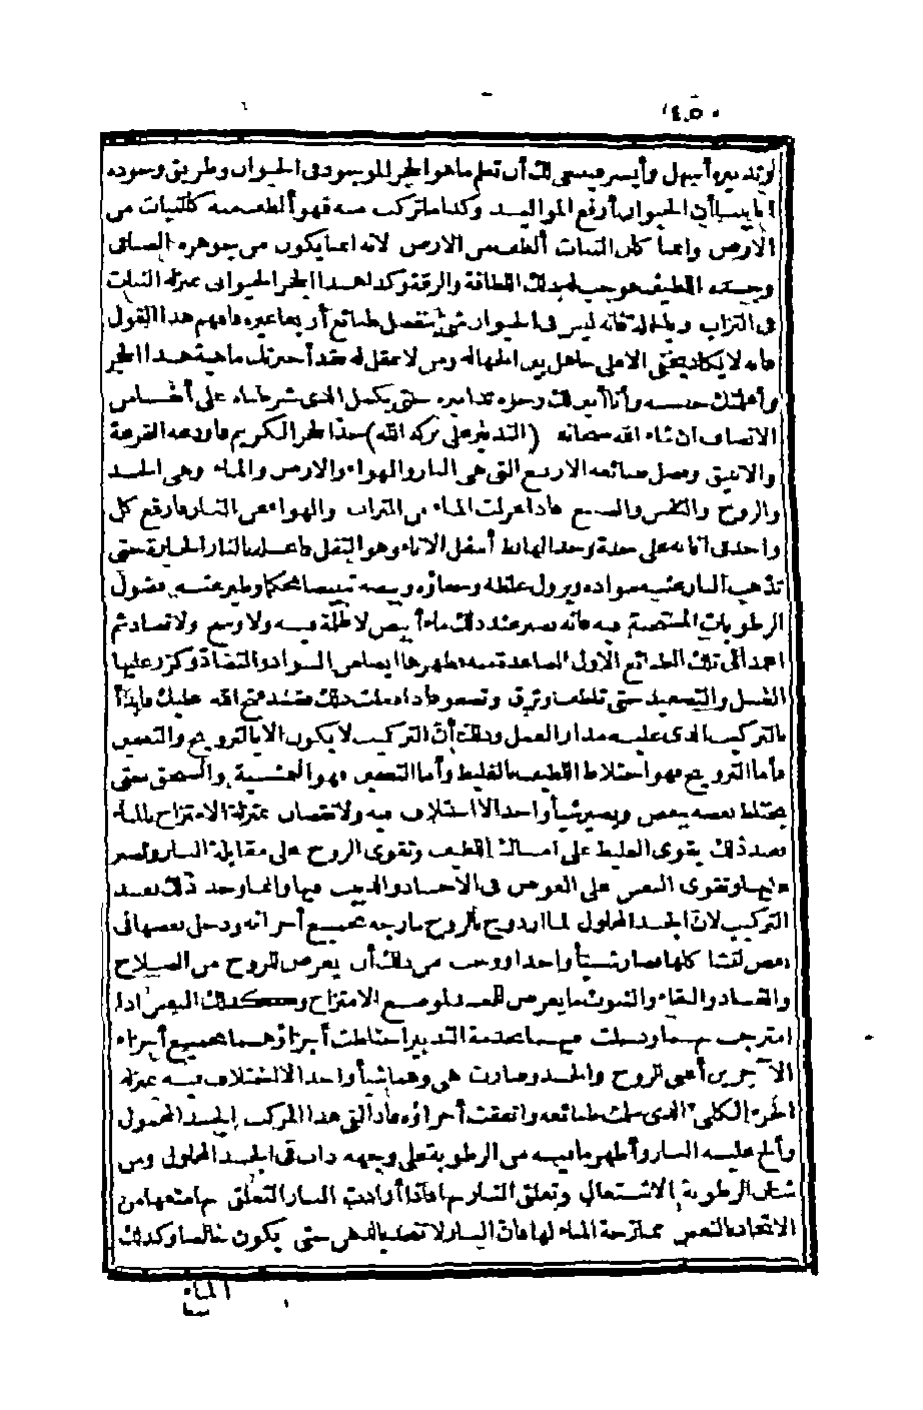 ٤٥٠
وتدبيره أسهل وأيسر فينبغي لك أن تعلم ما هو الحجر الموجود في الحيوان وطريق وجوده
انا بينا أن الحيوان أرفع المواليد وكذا ما تركب منه فهو ألطف منه كالنبات من
الارض وانما كان النبات ألطف من الارض لانه انما يكون من جوهره الصافى
وجسده اللطيف فوجب له بذلك اللطافة والرقة وكذا هذا الحجر الحيوانى بمنزلة النبات
فى التراب وبالجملة فانه ليس فى الحيوان شئ ينفصل طبائع أربعا غيره فافهم هذا القول
فانه لا يكاد يخفى الا على جاهل بين الجهالة ومن لا عقل له فقد أخبرتك ماهية هذا الحجر
وأعلمتك جنسه وأنا أبين لك وجوه تدابيره حتى يكمل الذى شرطناه على أنفسنا من
الانصاف ان شاء الله سبحانه (التدبير على بركة الله) خذ الحجر الكريم فاودعه القرعة
والانبيق وفصل طبائعه الاربع التى هى النار والهواء والارض والماء وهى الجسد
والروح والنفس والصبغ فاذا عزلت الماء من التراب والهواء من النار فارفع كل
واحد فى انائه على حدة وخذ الهابط أسفل الاناء وهو الثفل فاغسله بالنار الحارة حتى
تذهب النار عنه سواده ويزول غلظه وجفاؤه وبيضه تبييضا محكما وطير عنه فضول
الرطوبات المستجنة فيه فانه يصير عند ذلك ماء أبيض لا ظلمة فيه ولا وسخ ولا تضاد ثم
اعمد الى تلك الطبائع الاول الصاعدة منه فطهرها أيضا من السواد والتضاد وكرر عليها
الغسل والتصعيد حتى تلطف وترق وتصفو فاذا فعلت ذلك فقد فتح الله عليك فابدأ
بالتركيب الذى عليه مدار العمل وذلك أن التركيب لا يكون الا بالتزويج والتعفين
فأما التزويج فهو اختلاط اللطيف بالغليظ وأما التعفين فهو التمشية والسحق حتى
يختلط بعضه ببعض ويصير شيأ واحدا لا اختلاف فيه ولا نقصان بمنزلة الامتزاج بالماء
فعند ذلك يقوى الغليظ على امساك اللطيف وتقوى الروح على مقابلة النار وتصبر
عليها وتقوى النفس على الغوص فى الاجساد والدبيب فيها وانما وجد ذلك بعد
التركيب لان الجسد المحلول لما ازدوج بالروح مازجه بجميع أجزائه ودخل بعضها فى
بعض لتشاكلها فصار شيأ واحدا ووجب من ذلك أن يعرض للروح من الصلاح
والفساد والبقاء والثبوت ما يعرض للجسد لموضع الامتزاج وكذلك النفس اذا
امتزجت بهما ودخلت فيهما بخدمة التدبير اختلطت أجزاؤها بجميع أجزاء
الآخرين أعنى الروح والجسد وصارت هى وهما شيأ واحدا لا اختلاف فيه بمنزلة
الجزء الكلى الذى سلمت طبائعه واتفقت أجزاؤه فاذا ألقى هذا المركب الجسد المحلول
وألح عليه النار وأظهر ما فيه من الرطوبة على وجهه ذاب فى الجسد المحلول ومن
شأن الرطوبة الاشتعال وتعلق النار بها فاذا أرادت النار التعلق بها منعها من
الاتحاد بالنفس ممازجة الماء لها فان النار لا تتحد بالدهن حتى يكون خالصا وكذلك
الماء